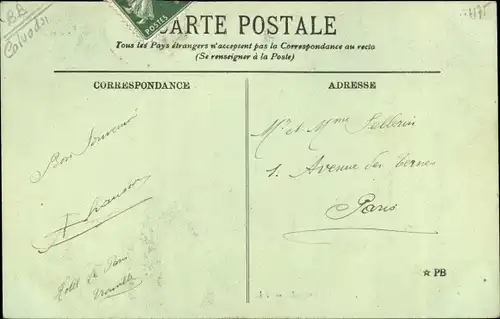 BB
Calvados
POSTES
CARTE POSTALE
Tous les Pays étrangers n'acceptent pas la Correspondance au recto
(Se renseigner à la Poste)
CORRESPONDANCE
Bon Souvenir
Hotel de Paris
Trouville
ADRESSE
Mr et Mme Pellerin
1. Avenue des Ternes
Paris
☆ PB